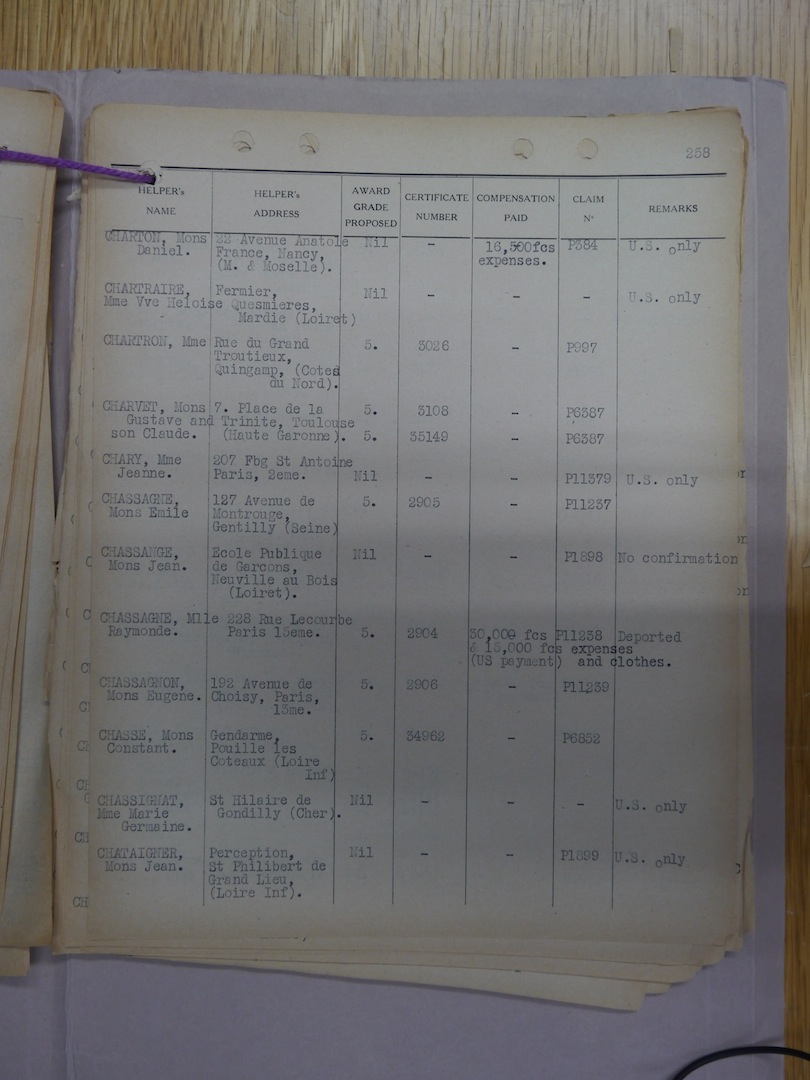 258
HELPER's NAME HELPER's ADDRESS AWARD GRADE PROPOSED CERTIFICATE NUMBER COMPENSATION PAID CLAIM N° REMARKS
CHARTON, Mons 22 Avenue Anatole Nil - 16,500fcs P384 U.S. only
Daniel. France, Nancy, expenses.
(M. & Moselle).
CHARTRAIRE, Fermier, Nil - - - U.S. only
Mme Vve Heloise Quesmieres,
Mardie (Loiret)
CHARTRON, Mme Rue du Grand 5. 3026 - P997
Troutieux,
Quingamp, (Cotes
du Nord).
CHARVET, Mons 7. Place de la 5. 3108 - P6387
Gustave and Trinite, Toulouse
son Claude. (Haute Garonne). 5. 35149 - P6387
CHARY, Mme 207 Fbg St Antoine
Jeanne. Paris, 2eme. Nil - - P11379 U.S. only
CHASSAGNE, 127 Avenue de 5. 2905 - P11237
Mons Emile Montrouge,
Gentilly (Seine)
CHASSANGE, Ecole Publique Nil - - P1898 No confirmation
Mons Jean. de Garcons,
Neuville au Bois
(Loiret).
CHASSAGNE, Mlle 228 Rue Lecourbe
Raymonde. Paris 15eme. 5. 2904 30,000 fcs P11238 Deported
& 15,000 fcs expenses
(US payment) and clothes.
CHASSAGNON, 192 Avenue de 5. 2906 - P11239
Mons Eugene. Choisy, Paris,
13me.
CHASSE, Mons Gendarme, 5. 34962 - P6852
Constant. Pouille les
Coteaux (Loire
Inf)
CHASSIGNAT, St Hilaire de Nil - - - U.S. only
Mme Marie Gondilly (Cher).
Germaine.
CHATAIGNER, Perception, Nil - - P1899 U.S. only
Mons Jean. St Philibert de
Grand Lieu,
(Loire Inf).